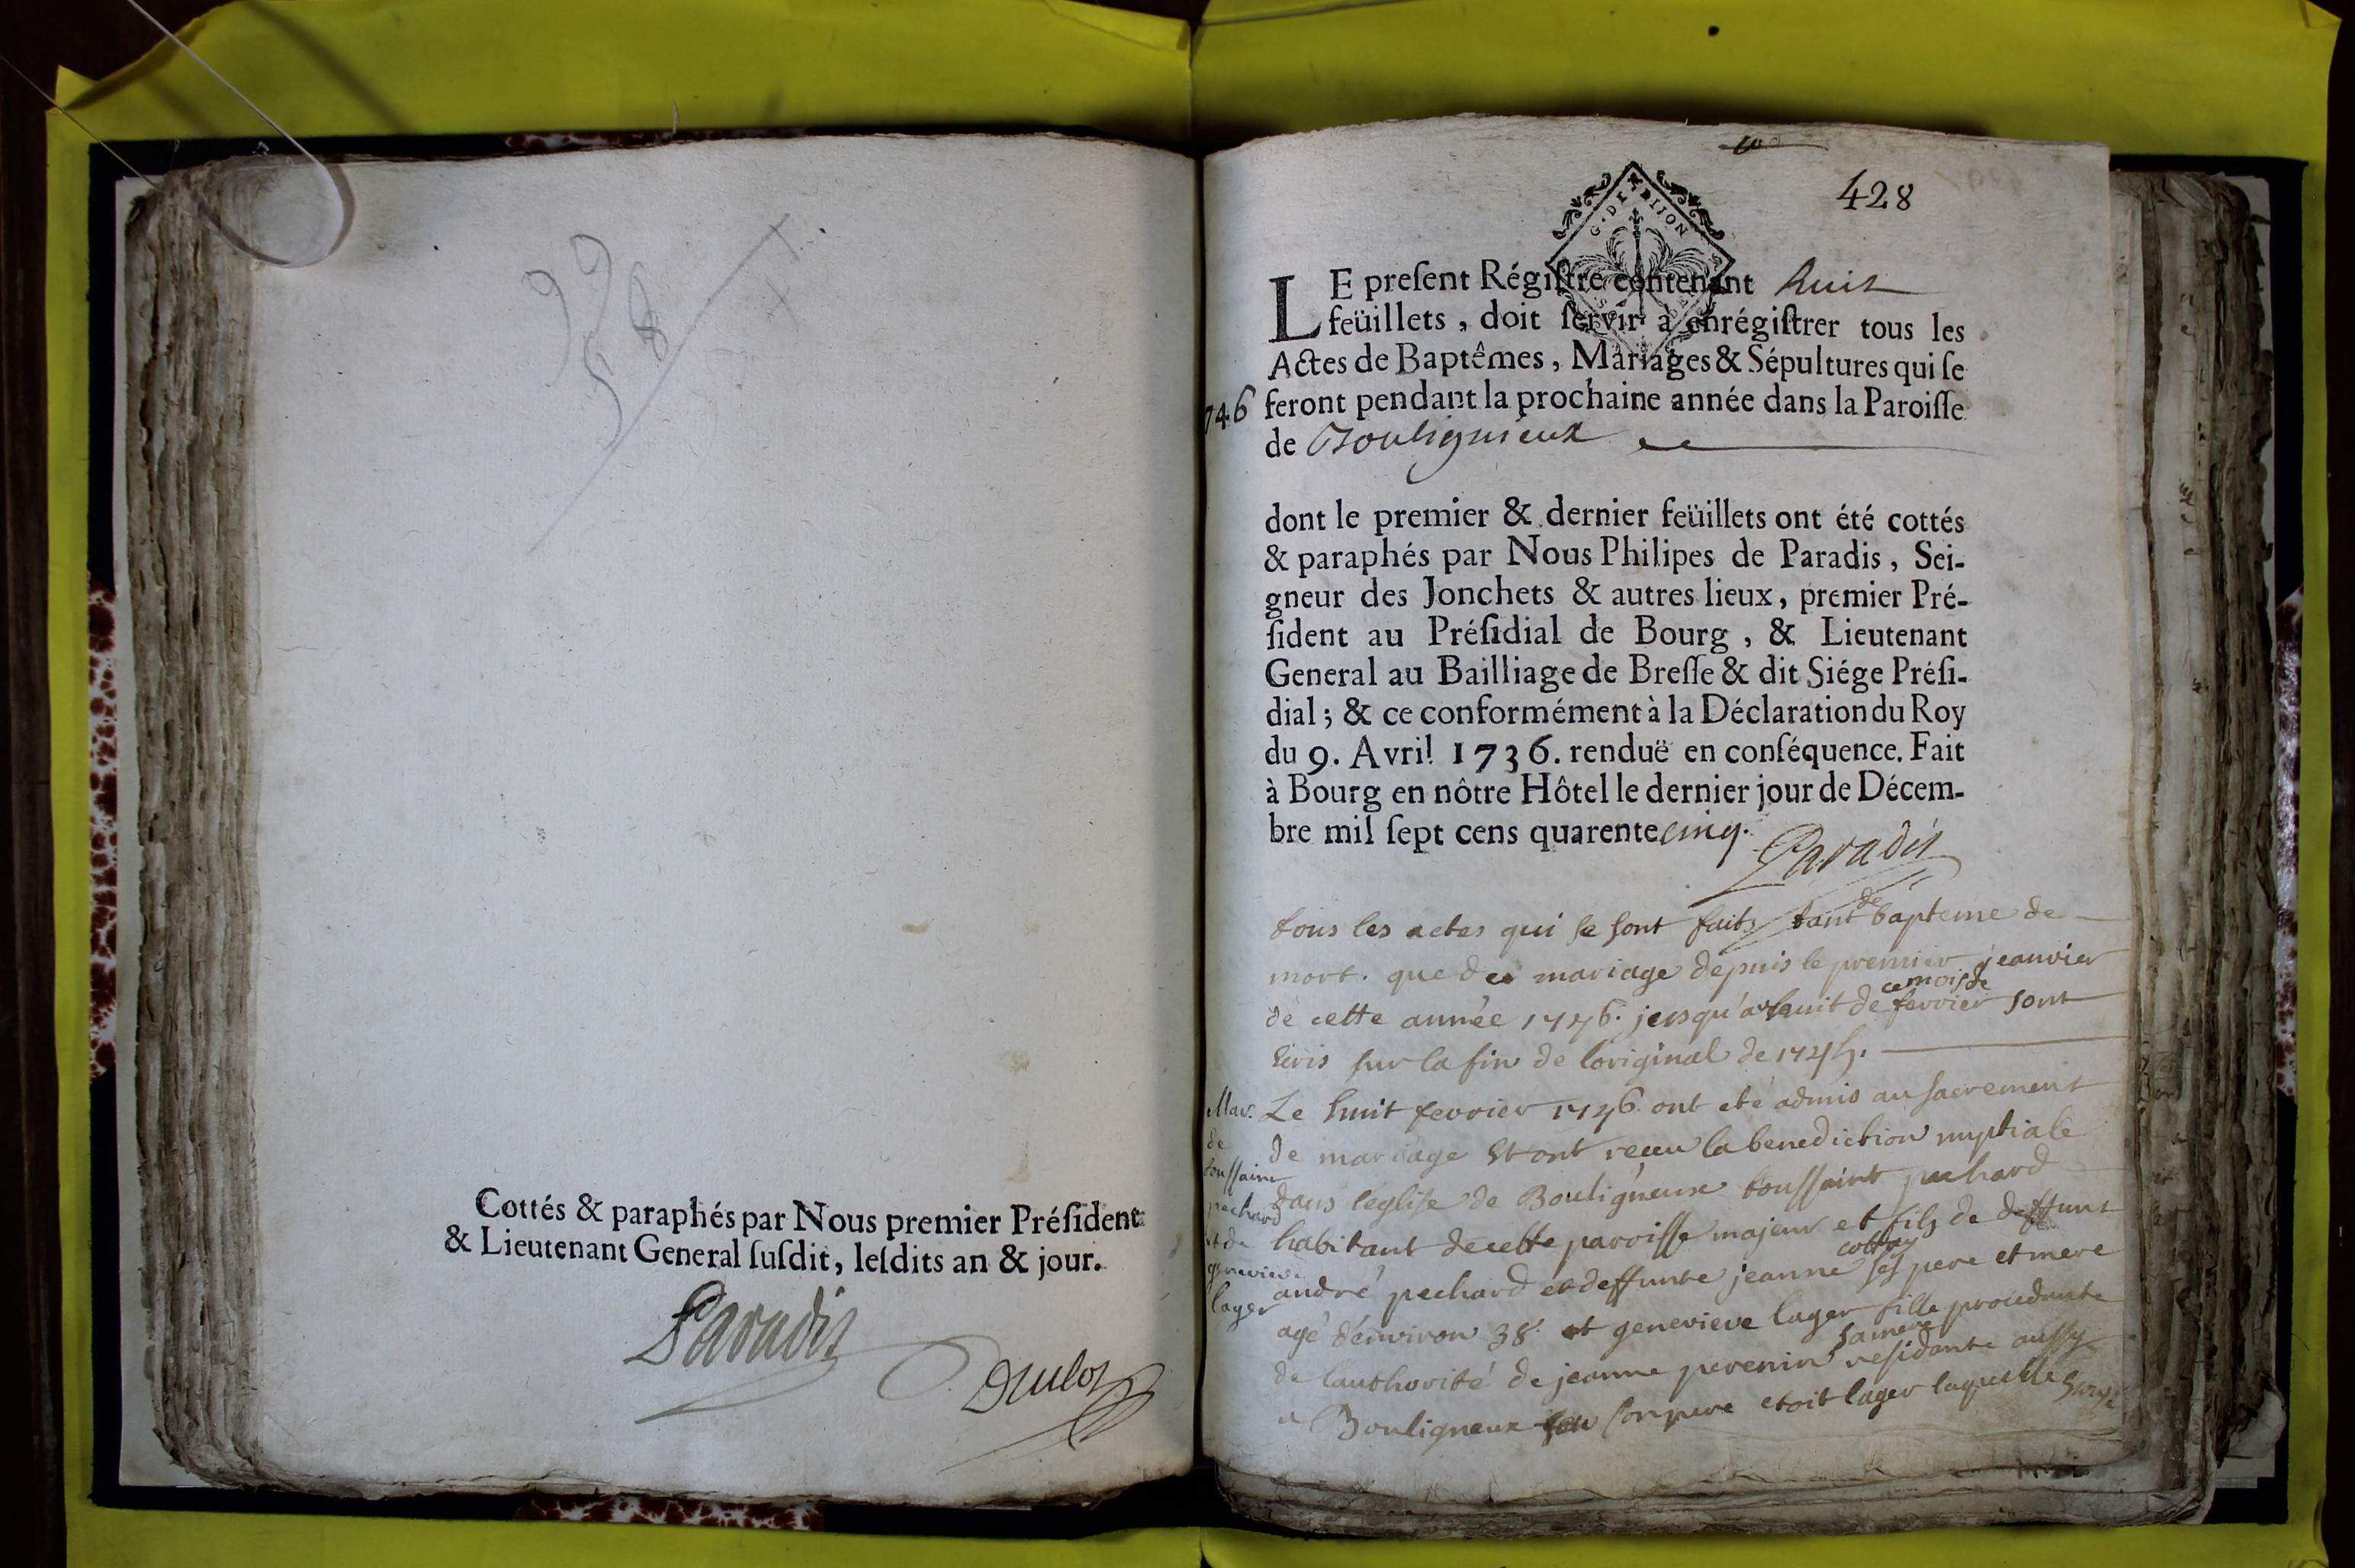 Cottés & paraphés par Nous premier Préſident
& Lieutenant General ſuſdit, leſdits an & jour.
Paradis
428
G. DE DIJON
LE preſent Régiſtre contenant huit
feüillets, doit ſervir à enrégiſtrer tous les
Actes de Baptêmes, Mariages & Sépultures qui ſe
1746 feront pendant la prochaine année dans la Paroiſſe
de Bouligneux
dont le premier & dernier feüillets ont été cottés
& paraphés par Nous Philipes de Paradis, Sei-
gneur des Jonchets & autres lieux, premier Pré-
ſident au Préſidial de Bourg, & Lieutenant
General au Bailliage de Breſſe & dit Siége Préſi-
dial; & ce conformément à la Déclaration du Roy
du 9. Avril 1736. renduë en conſéquence. Fait
à Bourg en nôtre Hôtel le dernier jour de Décem-
bre mil ſept cens quarente cinq.
Paradis
tous les actes qui se sont faits tant de bapteme de
mort. que de mariage depuis le premier jeanvier
de cette année 1746. jusqu'a huit de ce mois de fevrier sont
sur la fin de loriginal de 1745.
Mar.
de
toussaint
pechard
et de
genevieve
lager
Le huit fevrier 1746 ont eté admis au sacrement
de mariage et ont receu la benediction nuptiale
dans léglise de Bouligneux toussaint pechard
habitant de cette paroisse majeur et fils de deffunt
andré pechard et deffunte jeanne cottay ses pere et mere
agé d'environ 38. et genevieve lager fille procedante
de lauthorité de jeanne perenin sa mere residante aussy
a Bouligneux son pere etoit lager laquelle